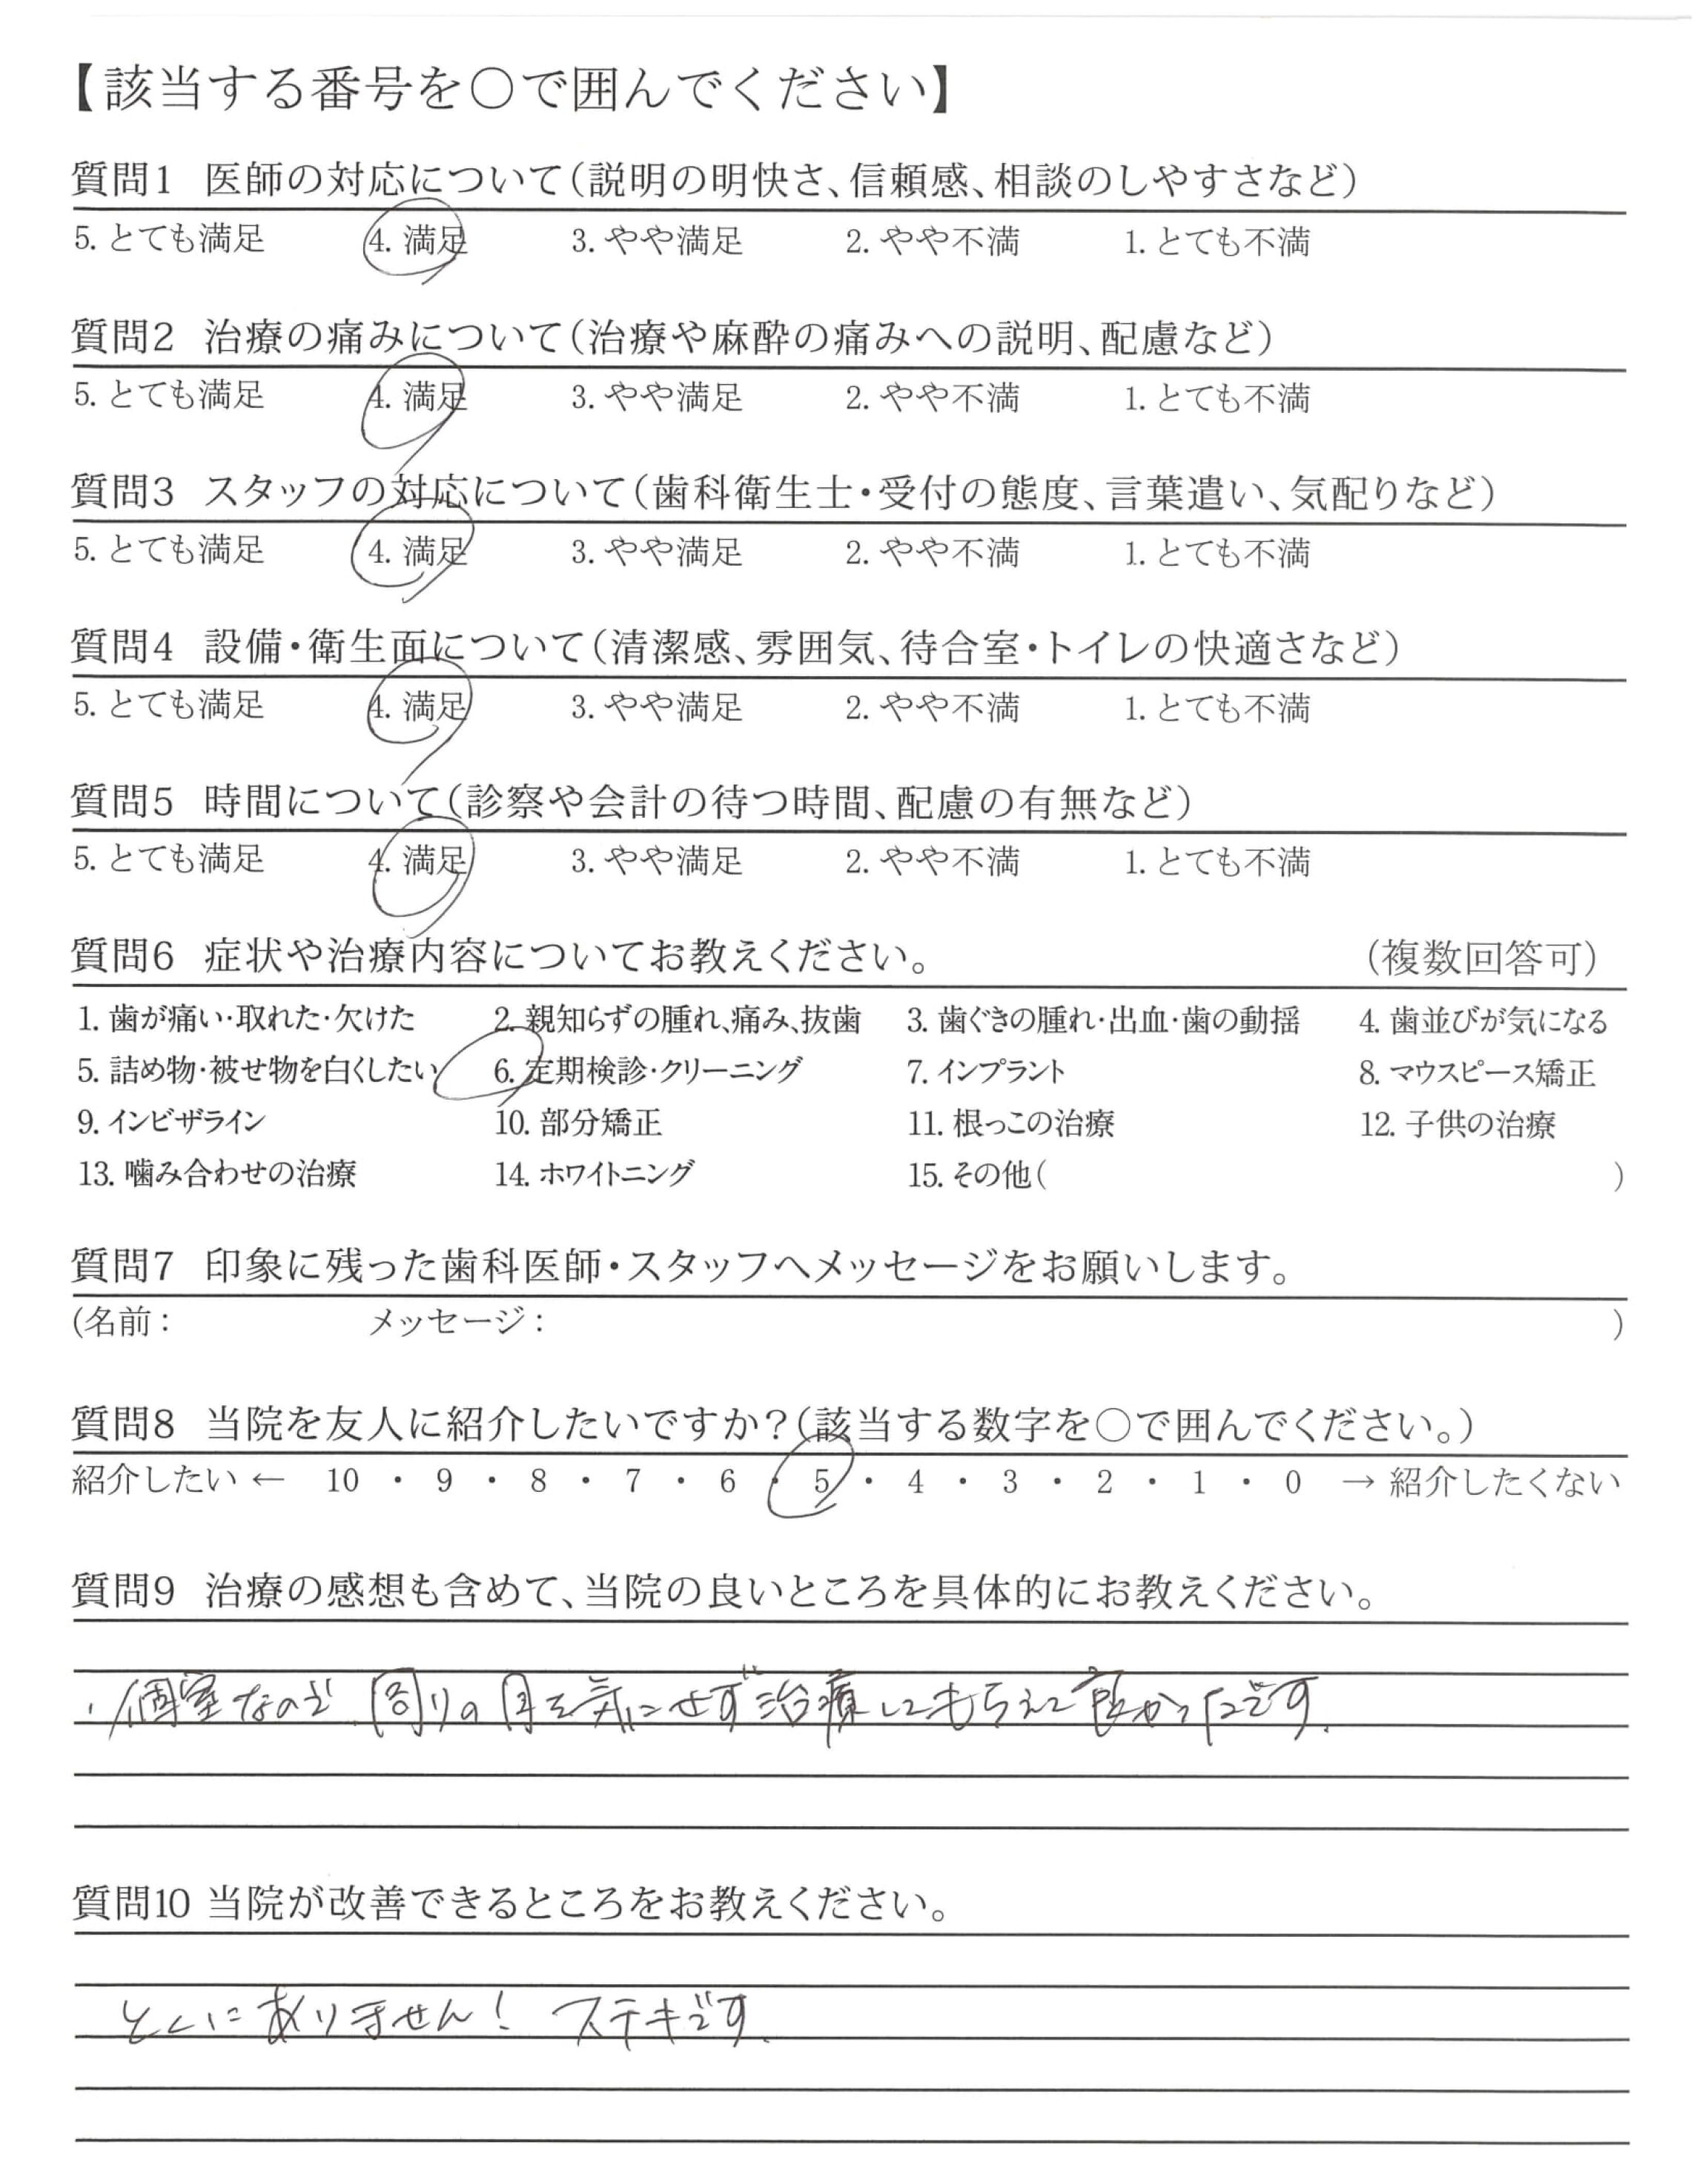 【該当する番号を○で囲んでください】
質問1 医師の対応について(説明の明快さ、信頼感、相談のしやすさなど)
5. とても満足 4. 満足 3. やや満足 2. やや不満 1. とても不満
質問2 治療の痛みについて(治療や麻酔の痛みへの説明、配慮など)
5. とても満足 4. 満足 3. やや満足 2. やや不満 1. とても不満
質問3 スタッフの対応について(歯科衛生士・受付の態度、言葉遣い、気配りなど)
5. とても満足 4. 満足 3. やや満足 2. やや不満 1. とても不満
質問4 設備・衛生面について(清潔感、雰囲気、待合室・トイレの快適さなど)
5. とても満足 4. 満足 3. やや満足 2. やや不満 1. とても不満
質問5 時間について(診察や会計の待つ時間、配慮の有無など)
5. とても満足 4. 満足 3. やや満足 2. やや不満 1. とても不満
質問6 症状や治療内容についてお教えください。 (複数回答可)
1. 歯が痛い・取れた・欠けた 2. 親知らずの腫れ、痛み、抜歯 3. 歯ぐきの腫れ・出血・歯の動揺 4. 歯並びが気になる
5. 詰め物・被せ物を白くしたい 6. 定期検診・クリーニング 7. インプラント 8. マウスピース矯正
9. インビザライン 10. 部分矯正 11. 根っこの治療 12. 子供の治療
13. 噛み合わせの治療 14. ホワイトニング 15. その他( )
質問7 印象に残った歯科医師・スタッフへメッセージをお願いします。
(名前： メッセージ： )
質問8 当院を友人に紹介したいですか？(該当する数字を○で囲んでください。)
紹介したい ← 10 ・ 9 ・ 8 ・ 7 ・ 6 ・ 5 ・ 4 ・ 3 ・ 2 ・ 1 ・ 0 → 紹介したくない
質問9 治療の感想も含めて、当院の良いところを具体的にお教えください。
・個室なので周りの目を気にせず治療してもらえて良かったです。
質問10 当院が改善できるところをお教えください。
とくにありません！ ステキです。